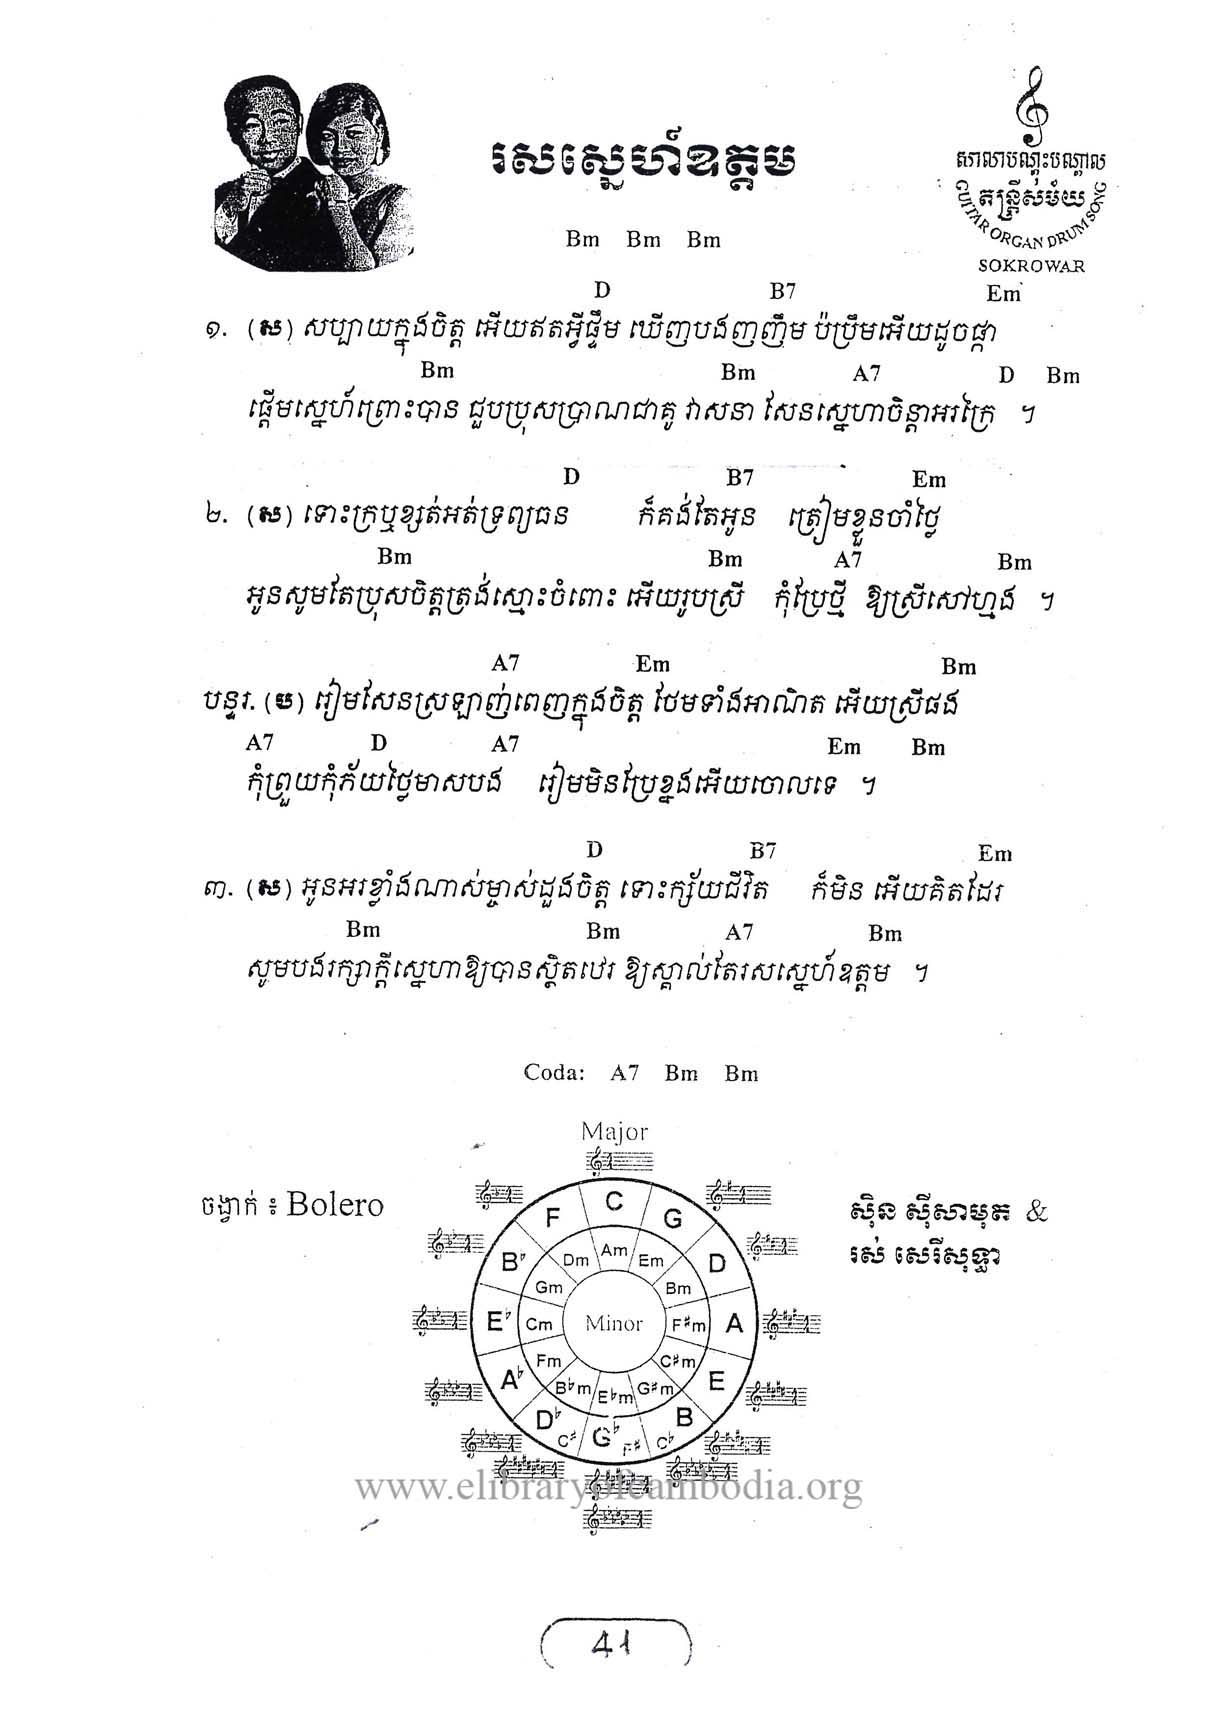 រសស្នេហ៍ឧត្តម
សាលាបណ្តុះបណ្តាល
តន្ត្រីសម័យ
GUITAR ORGAN DRUM SONG
SOKROWAR
Bm Bm Bm
D B7 Em
១. (ស) សប្បាយក្នុងចិត្ត អើយឥតអ្វីផ្ទឹម ឃើញបងញញឹម ប៉ប្រឹមអើយដូចផ្កា
Bm Bm A7 D Bm
ផ្តើមស្នេហ៍ព្រោះបាន ជួបប្រុសប្រាណជាគូ វាសនា សែនស្នេហាចិន្តាអរក្រៃ ។
D B7 Em
២. (ស) ទោះក្រឬខ្សត់អត់ទ្រព្យធន ក៏គង់តែអូន ត្រៀមខ្លួនចាំថ្លៃ
Bm Bm A7 Bm
អូនសូមតែប្រុសចិត្តត្រង់ស្មោះចំពោះ អើយរូបស្រី កុំប្រែថ្មី ឱ្យស្រីសៅហ្មង ។
A7 Em Bm
បន្ទរ. (ប) រៀមសែនស្រឡាញ់ពេញក្នុងចិត្ត ថែមទាំងអាណិត អើយស្រីផង
A7 D A7 Em Bm
កុំព្រួយកុំភ័យថ្លៃមាសបង រៀមមិនប្រែខ្នងអើយចោលទេ ។
D B7 Em
៣. (ស) អូនអរខ្លាំងណាស់ម្ចាស់ដួងចិត្ត ទោះក្ស័យជីវិត ក៏មិន អើយគិតដែរ
Bm Bm A7 Bm
សូមបងរក្សាក្តីស្នេហាឱ្យបានស្ថិតថេរ ឱ្យស្គាល់តែរសស្នេហ៍ឧត្តម ។
Coda: A7 Bm Bm
Major
ចង្វាក់ ៖ Bolero
ស៊ិន ស៊ីសាមុត &
រស់ សេរីសុទ្ធា
C G D A E B C♭ G♭ F♯ D♭ C♯ A♭ E♭ B♭ F
Am Em Bm F♯m C♯m G♯m E♭m B♭m Fm Cm Gm Dm
Minor
www.elibraryofcambodia.org
41